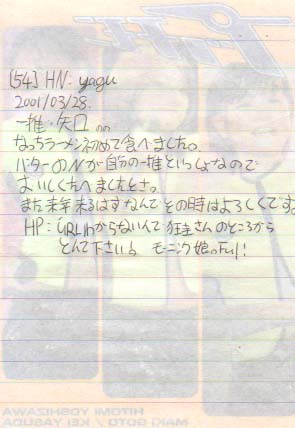 [54] HN: yagu
2001/03/28.
一推・矢口
なっちラーメン初めて食べました。
バターのNが自分の一推といっしょなので
おいしく食べましたとさ。
また来年来るはずなんでその時はよろしくです。
HP: URLわからないんで 狂主さんのところから
とんで下さい
モーニング娘。
HITOMI YOSHIZAWA
MAKI GOTO / KEI YASUDA